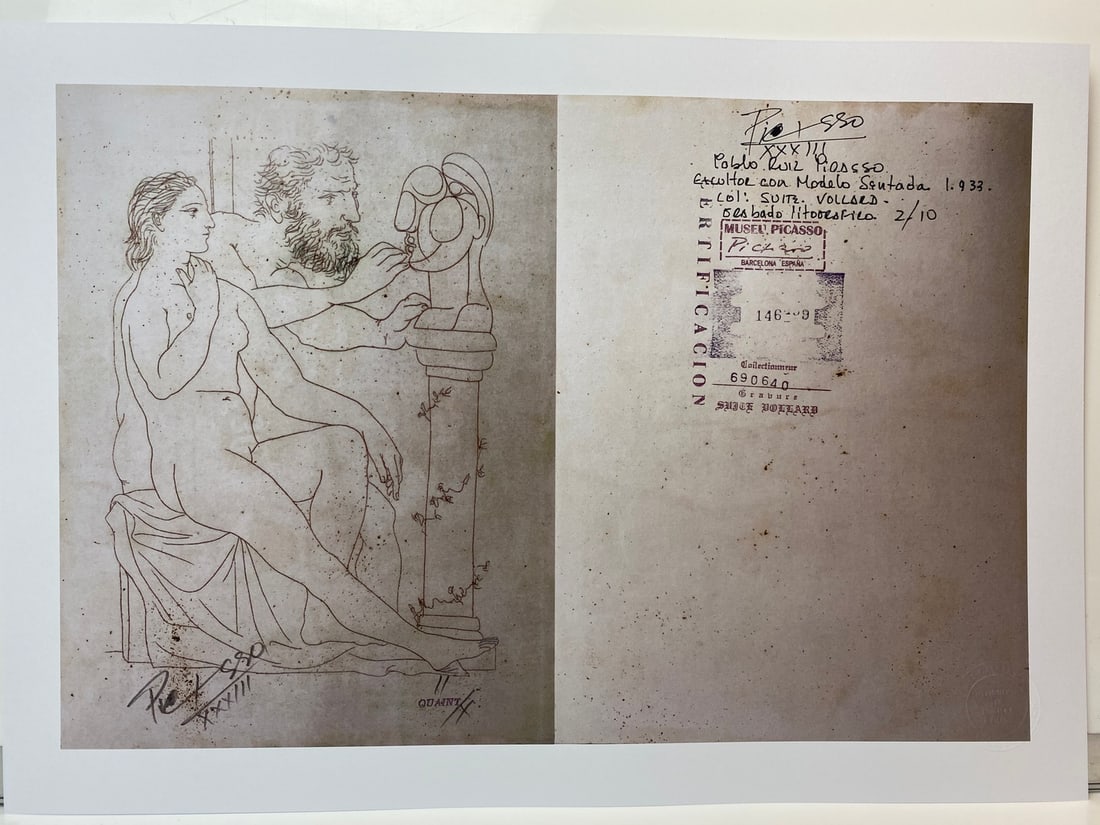 Picasso
XXXIII
QUAINT
Picasso
XXXIII
Pablo Ruiz Picasso
Escultor con Modelo Sentada 1.933.
Col: SUITE VOLLARD-
Grabado litografico 2/10
MUSEU PICASSO
Picasso
BARCELONA ESPAÑA
ERTIFICACION
Collectionneur
690640
Gravure
SUITE VOLLARD